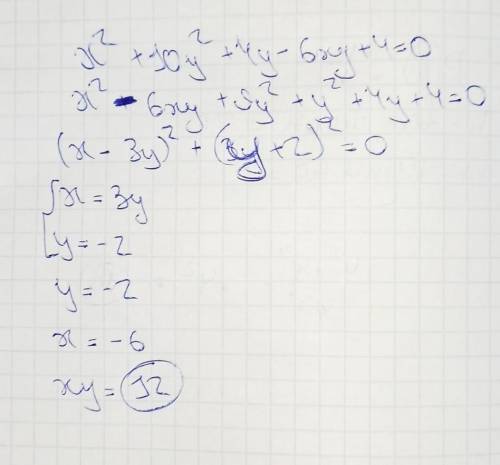 x² + 10y² + 4y - 6xy + 4 = 0
x² - 6xy + 9y² + y² + 4y + 4 = 0
(x - 3y)² + (y + 2)² = 0
{ x = 3y
y = -2
y = -2
x = -6
xy = 12